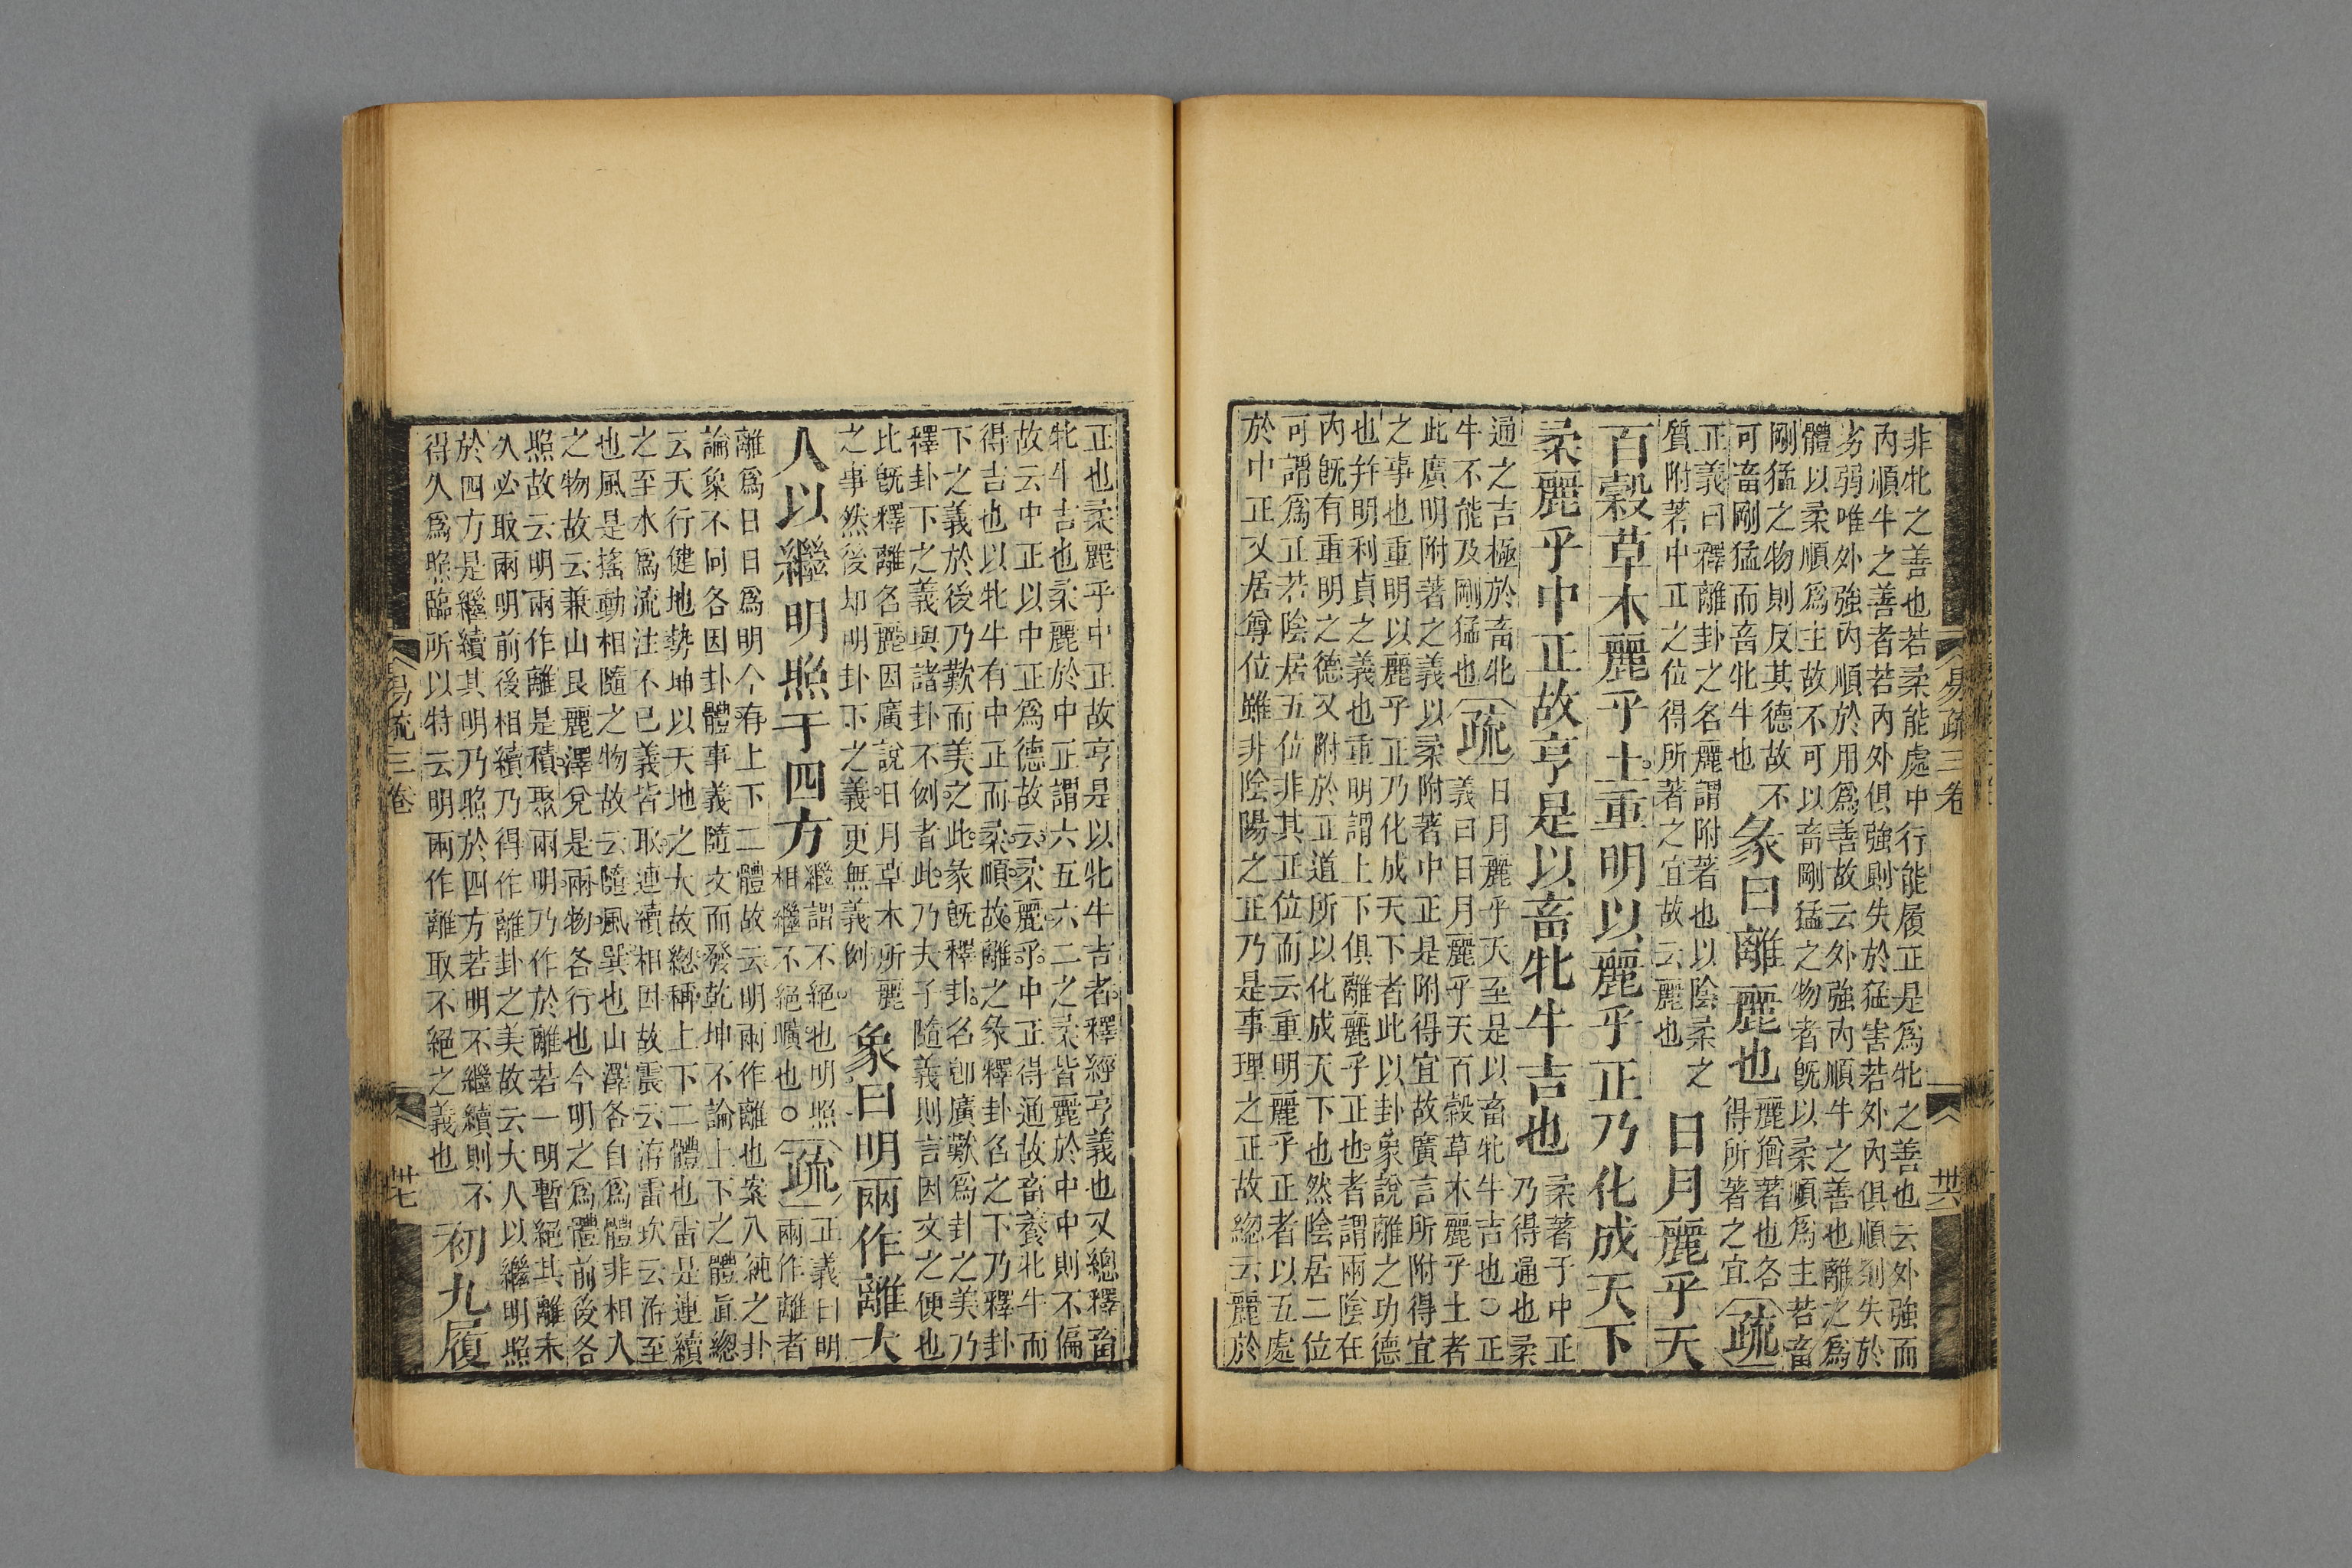 非牝之善也若柔能處中行能履正是爲牝之善也云外強而
內順牛之善者若內外俱強則失於猛害若外內俱順則失於
劣弱唯外強內順於用爲善故云外強內順牛之善也離之爲
體以柔順爲主故不可以畜剛猛之物者旣以柔順爲主若畜
剛猛之物則反其德故不
可畜剛猛而畜牝牛也
彖曰離麗也
麗猶著也各
得所著之宜
疏
正義曰釋離卦之名麗謂附著也以陰柔之
質附著中正之位得所著之宜故云麗也
日月麗乎天
百穀草木麗乎土重明以麗乎正乃化成天下
柔麗乎中正故亨是以畜牝牛吉也
柔著于中正
乃得通也柔
通之吉極於畜牝
牛不能及剛猛也
疏
日月麗乎天至是以畜牝牛吉也○正
義曰日月麗乎天百穀草木麗乎土者
此廣明附著之義以柔附著中正是附得宜故廣言所附得宜
之事也重明以麗乎正乃化成天下者此以卦象說離之功德
也幷明利貞之義也重明謂上下俱離麗乎正也者謂兩陰在
內旣有重明之德又附於正道所以化成天下也然陰居二位
可謂爲正若陰居五位非其正位而云重明麗乎正者以五處
於中正又居尊位雖非陰陽之正乃是事理之正故總云麗於
易疏三卷
卅六
正也柔麗乎中正故亨是以牝牛吉者釋經亨義也又總釋畜
牝牛吉也柔麗於中正謂六五六二之柔皆麗於中中則不偏
故云中正以中正爲德故云柔麗乎中正得通故畜養牝牛而
得吉也以牝牛有中正而柔順故離之彖釋卦名之下乃釋卦
下之義於後乃歎而美之此彖旣釋卦名卽廣歎爲卦之美乃
釋卦下之義與諸卦不例者此乃夫子隨義則言因文之便也
比旣釋離名麗因廣說日月草木所麗
之事然後却明卦下之義更無義例
象曰明兩作離大
人以繼明照于四方
繼謂不絕也明照
相繼不絕曠也○
疏
正義曰明
兩作離者
離爲日日爲明今有上下二體故云明兩作離也案八純之卦
論象不同各因卦體事義隨文而發乾坤不論上下之體直總
云天行健地勢坤以天地之大故總稱上下二體也雷是連續
之至水爲流注不已義皆取連續相因故震云洊雷坎云洊至
也風是搖動相隨之物故云隨風巽也山澤各自爲體非相入
之物故云兼山艮麗澤兌是兩物各行也今明之爲體前後各
照故云明兩作離是積聚兩明乃作於離若一明暫絕其離未
久必取兩明前後相續乃得作離卦之美故云大人以繼明照
於四方是繼續其明乃照於四方若明不繼續則不
得久爲照臨所以特云明兩作離取不絕之義也
初九履
易疏三卷
卅七